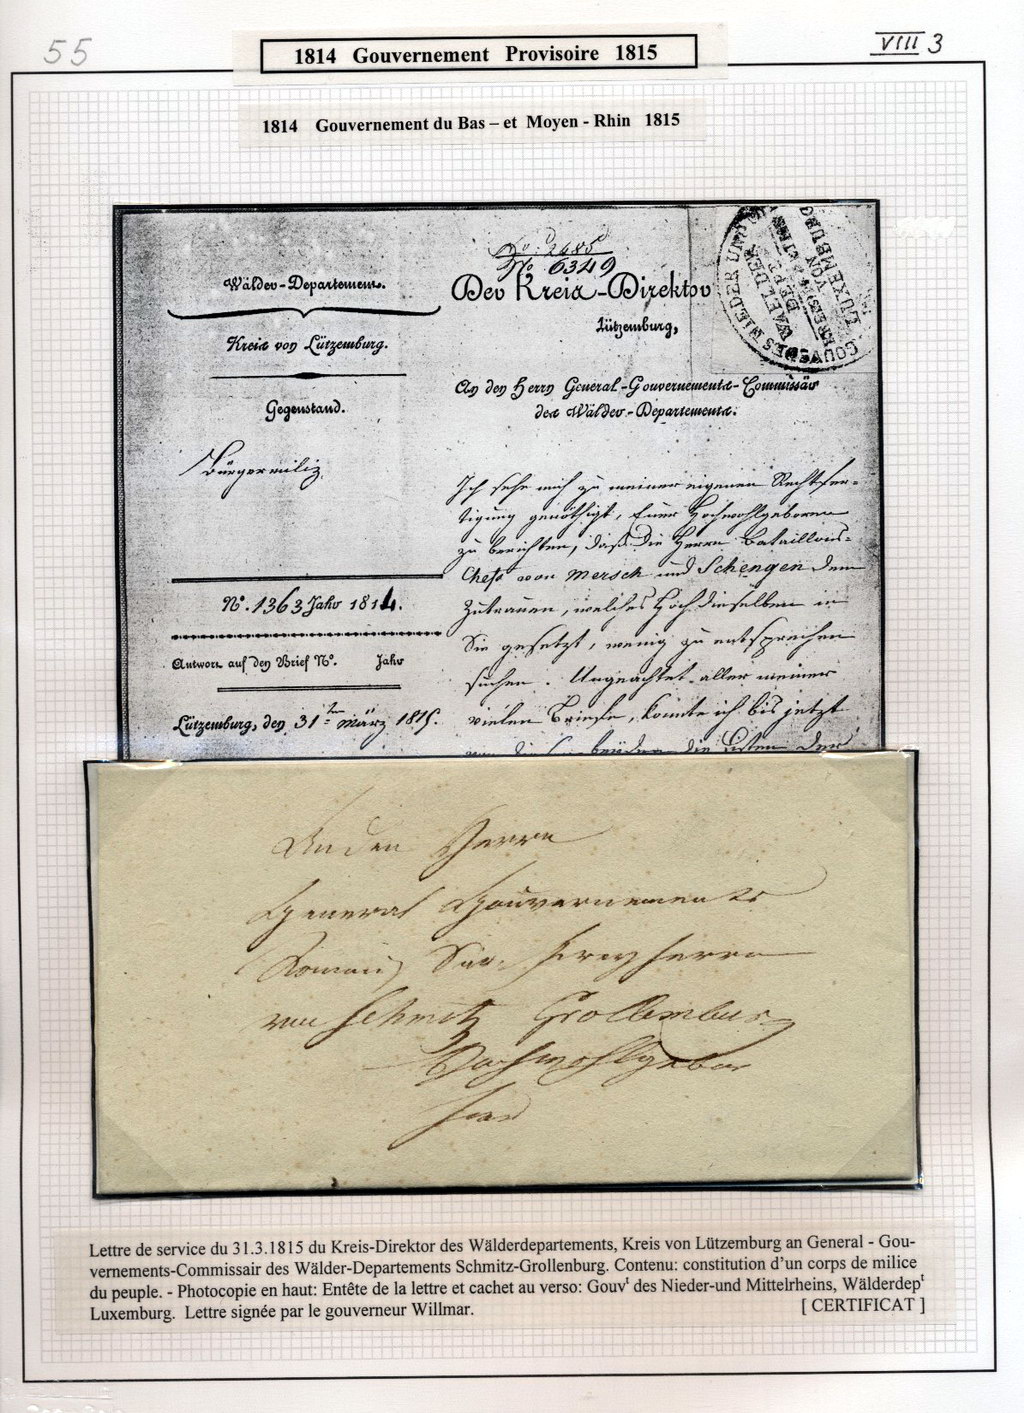 55
VIII 3
1814 Gouvernement Provisoire 1815
1814 Gouvernement du Bas – et Moyen - Rhin 1815
No 6349
Wälder-Departement.
Kreis von Lützemburg.
Gegenstand.
Bürgermiliz
No. 1363 Jahr 1814.
Antwort auf den Brief No. Jahr
Lützemburg, den 31ten März 1815.
Der Kreis-Direktor
Lützemburg,
An den Herrn General-Gouvernements-Commissär
des Wälder-Departements.
Ich sehe mich zu meiner eigenen Rechtfer-
tigung genöthigt, Euer Hochwohlgeboren
zu berichten, daß die Herrn Bataillons-
Chefs von Mersch und Schengen dem
Zutrauen, welches Hochdieselben in
Sie gesetzt, wenig zu entsprechen
suchen. Ungeachtet aller meiner
vielen Briefe, konnte ich bis jetzt
die Listen der
GOUV DES NIEDER UND
WAELDER
DEPT
KREIS VON
LUXEMBURG
An den Herrn
General Gouvernements
Commis Sair Freyherrn
von Schmitz Grollenburg
Hochwohlgebor
Lettre de service du 31.3.1815 du Kreis-Direktor des Wälderdepartements, Kreis von Lützemburg an General - Gou-
vernements-Commissair des Wälder-Departements Schmitz-Grollenburg. Contenu: constitution d'un corps de milice
du peuple. - Photocopie en haut: Entête de la lettre et cachet au verso: Gouvt des Nieder-und Mittelrheins, Wälderdept
Luxemburg. Lettre signée par le gouverneur Willmar. [ CERTIFICAT ]